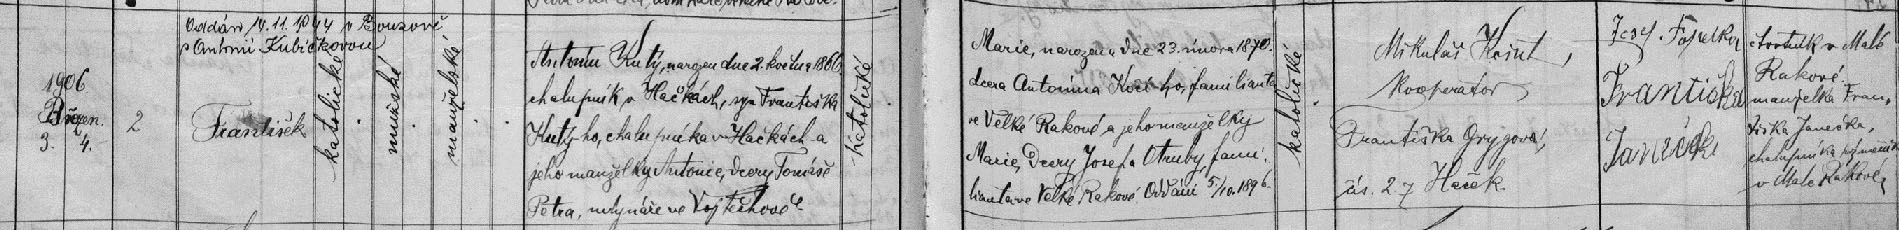 Oddán 14.11.1944 v Bouzově
s Antonií Kubíčkovou
1906
Březen.
3. 4.
2
František
katolické
mužské
manželské
Antonín Kutý, narozen dne 2. května 1866,
chalupník v Hačkách, syn Františka
Kutýho, chalupníka v Hačkách a
jeho manželky Antonie, dcery Tomáše
Petra, mlynáře ve Vojtěchově
katolické
Marie, narozena dne 23. února 1870.
dcera Antonína, familianta
ve Velké Rakové a jeho manželky
Marie, dcery Josefa Otruby, fami-
lianta ve Velké Rakové. Oddáni 5/10. 1896.
katolické
Mikuláš
Kooperator
Františka Grygová,
čís. 27 Haček.
Josef
v Malé
Rakové.
Františka
Janečka
manželka Fran-
tiška Janečka,
chalupníka
v Malé Rakové,